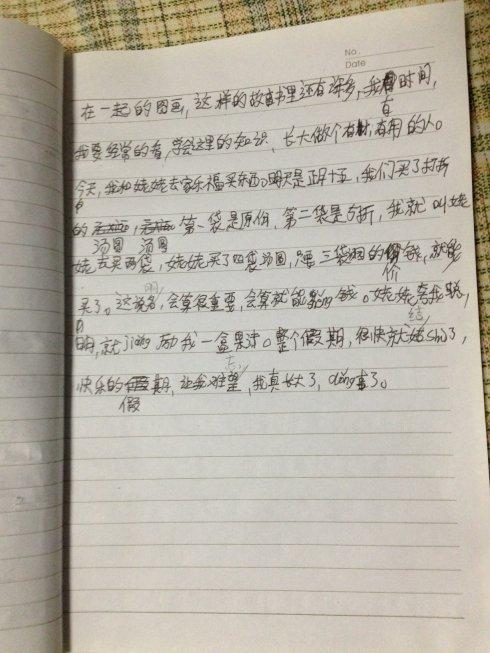 No.
Date
在一起的图画,这样的故事书里还有许多,我有时间,
我要经常的看,学会这里的知识,长大做个有才,有用的人。
今天,我和姥姥去家乐福买东西。明天是正月十五,我们买了打折
的汤圆,汤圆第一袋是原价,第二袋是5折,我就叫姥
姥去买两袋,姥姥买了四袋汤圆,要三袋的价钱,就能
买了。这说明,会算很重要,会算就能省钱。姥姥夸我聪
明,就jiǎng励我一盒果冻。整个假期,很快就结shù了,
快乐的假期,让我难忘,我真长大了,dǒng事了。